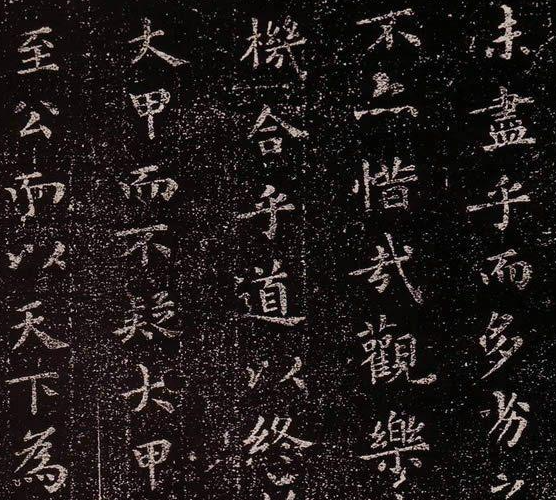 未盡乎而多劣
不亦惜哉觀樂
機合乎道以終
大甲而不疑大甲
至公而以天下為